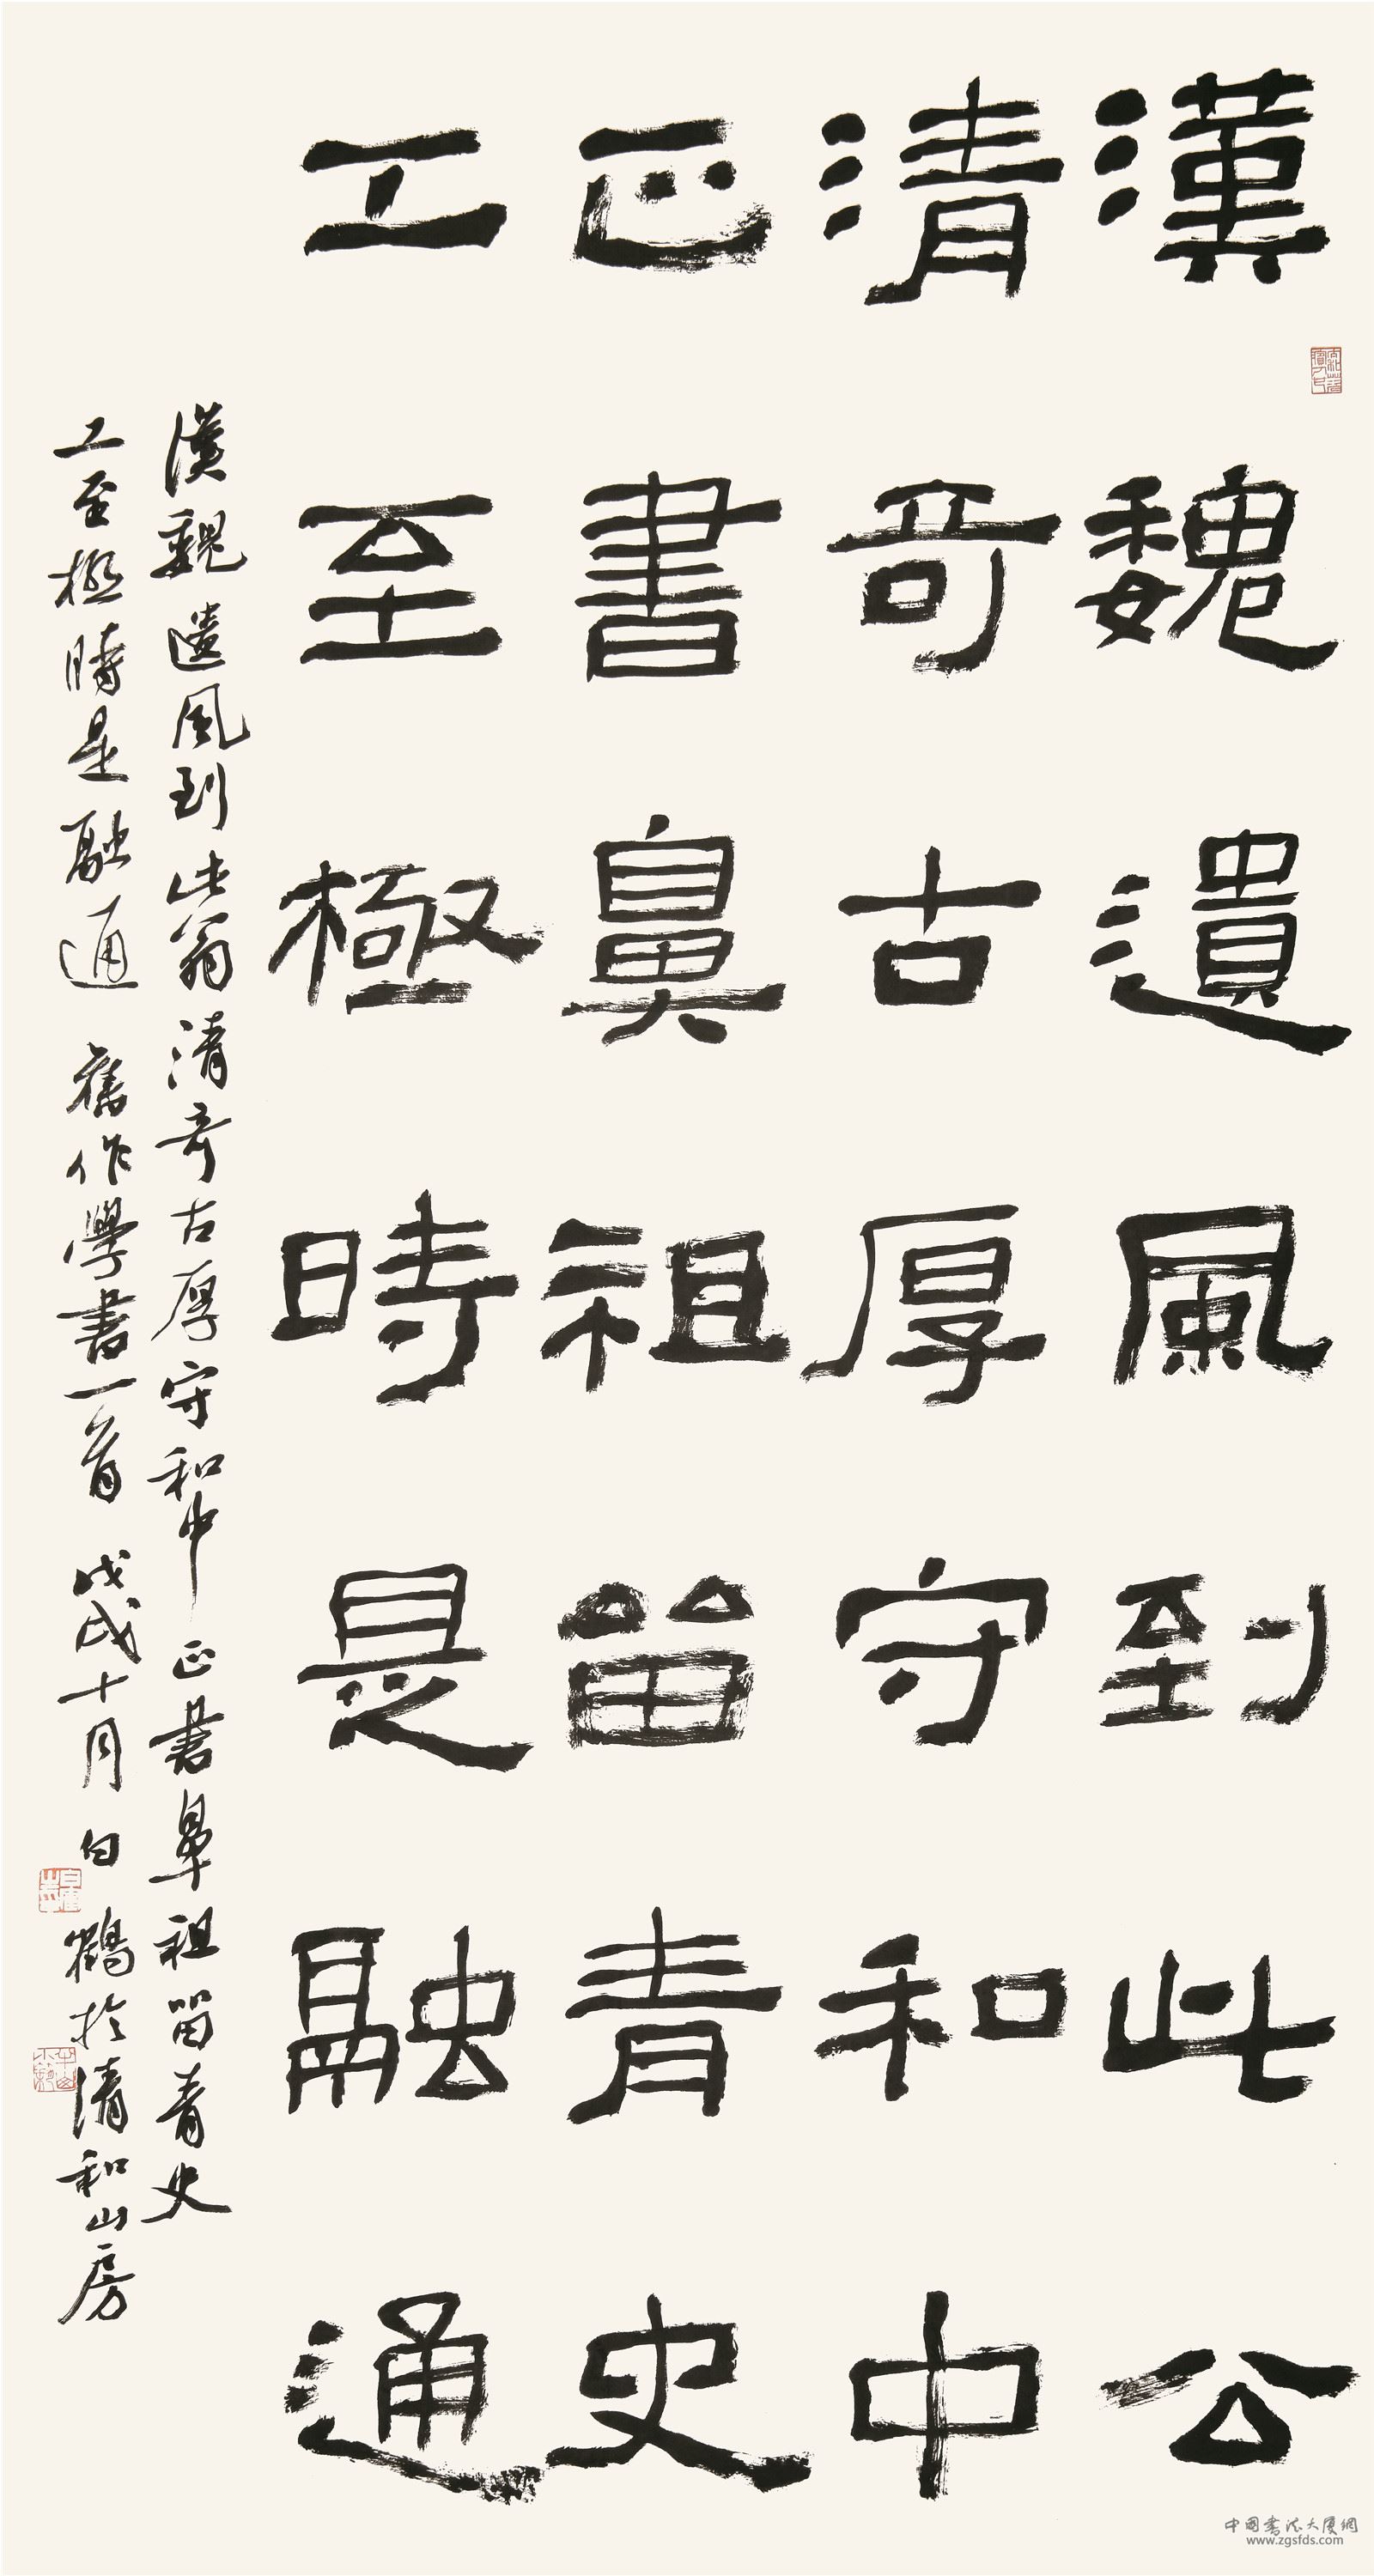 漢魏遺風到此公
清奇古厚守和中
正書鼻祖留青史
工至極時是融通
漢魏遺風到此翁清奇古厚守和中正書鼻祖留青史
工至極時是融通 舊作學書一首 戊戌十月白鶴於清和山房
中国书法大厦網
www.zgsfds.com